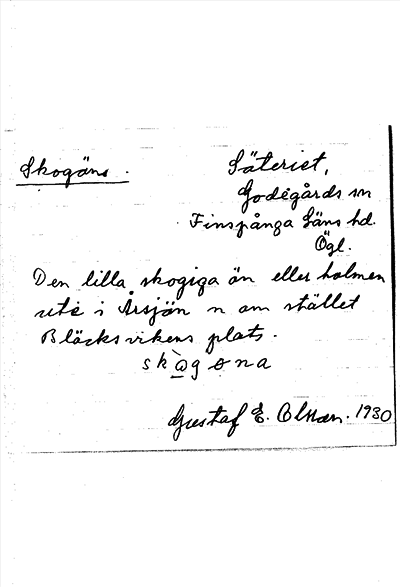 Skogäns.
Säteriet,
Godegårds sn
Finspånga Läns hd.
Ögl.
Den lilla skogiga ön eller holmen
ute i Årsjön n om stället
Bläcksvikens plats.
skògona
Gustaf E. Olsson. 1930